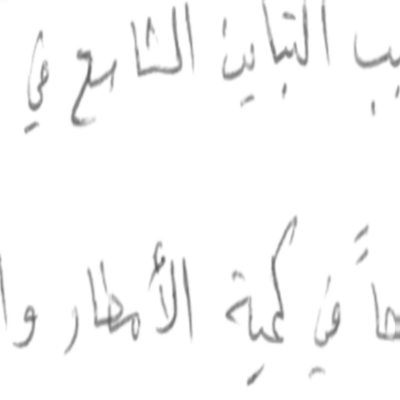 التباين الشاسع في
في كمية الأمطار